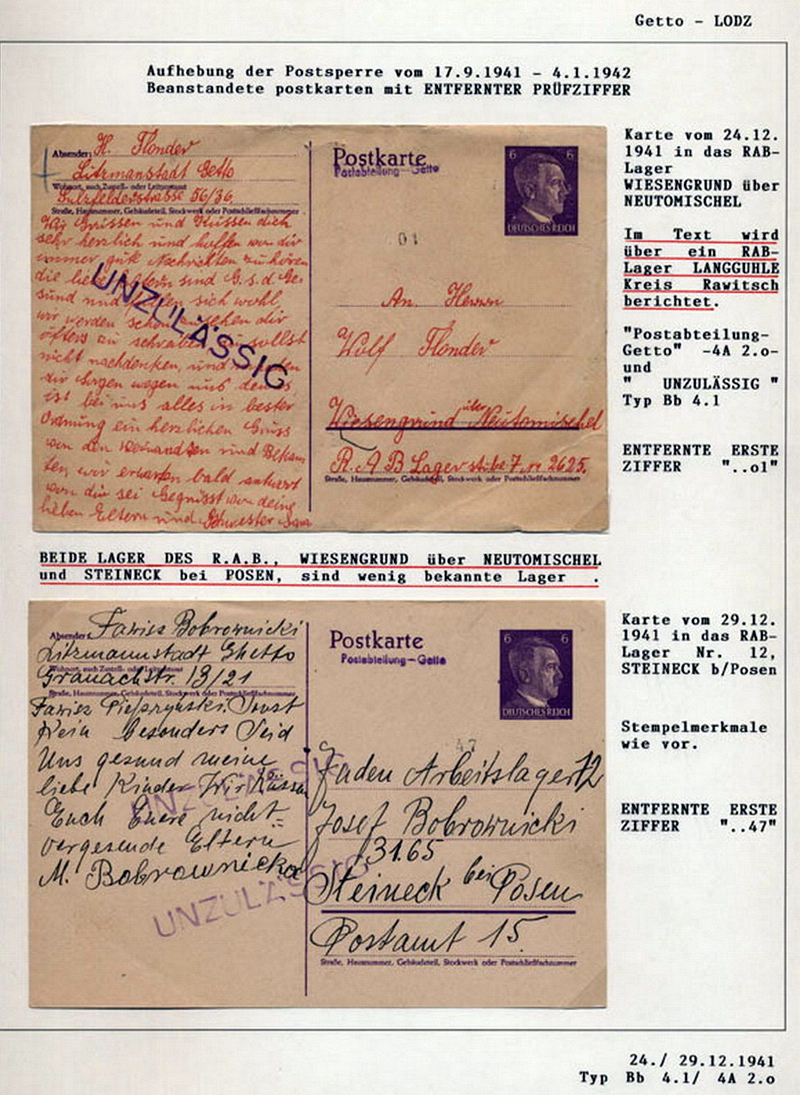 Getto – LODZ
Aufhebung der Postsperre vom 17.9.1941 – 4.1.1942
Beanstandete postkarten mit ENTFERNTER PRÜFZIFFER
Absender: H. Flonder
Litzmanstadt Getto
Wohnort, auch Zustell- oder Leitpostamt
Sulzfelderstrasse 56/36
Straße, Hausnummer, Gebäudeteil, Stockwerk oder Postschließfachnummer
Wir Grüssen und Küssen dich
sehr herzlich und hoffen von dir
immer gute Nachrichten zu hören
die lieben Eltern sind G.s.d. Ge
sund und fühlen sich wohl,
wir werden schon dir
öfters zu schreiben sollst
nicht nachdenken, und
dir Sorgen wegen uns denn es
ist bei uns alles in bester
Ordnung ein herzlichen Gruss
von den Verwandten und Bekan
ten, wir erwarten bald antwort
von dir sei Gegrüsst von deine
lieben Eltern und Schwester
UNZULÄSSIG
Postkarte
Postabteilung-Getto
6 6
DEUTSCHES REICH
01
An Herrn
Wolf Flonder
Wiesengrund über Neutomischel
R.A.B Lager stube 7. nr 2625.
Straße, Hausnummer, Gebäudeteil, Stockwerk oder Postschließfachnummer
Karte vom 24.12.
1941 in das RAB-
Lager
WIESENGRUND über
NEUTOMISCHEL
Im Text wird
über ein RAB-
Lager LANGGUHLE
Kreis Rawitsch
berichtet.
"Postabteilung-
Getto" -4A 2.o-
und
" UNZULÄSSIG "
Typ Bb 4.1
ENTFERNTE ERSTE
ZIFFER "..o1"
BEIDE LAGER DES R.A.B., WIESENGRUND über NEUTOMISCHEL
und STEINECK bei POSEN, sind wenig bekannte Lager .
Absender: Fawies Bobrownicki
Litzmannstadt Ghetto
Wohnort, auch Zustell- oder Leitpostamt
Granachstr. 13/21
Straße, Hausnummer, Gebäudeteil, Stockwerk oder Postschließfachnummer
Fawies
Kein besonders Seid
Uns gesund meine
liebe Kinder Wir Küssen
Euch Euere nicht
vergesende Eltern
M. Bobrownicka
UNZULÄSSIG
UNZULÄSSIG
Postkarte
Postabteilung-Getto
6 6
DEUTSCHES REICH
47
Juden Arbeitslager 12
Josef Bobrownicki
13165
Steineck bei Posen
Postamt 15.
Straße, Hausnummer, Gebäudeteil, Stockwerk oder Postschließfachnummer
Karte vom 29.12.
1941 in das RAB-
Lager Nr. 12,
STEINECK b/Posen
Stempelmerkmale
wie vor.
ENTFERNTE ERSTE
ZIFFER "..47"
24./ 29.12.1941
Typ Bb 4.1/ 4A 2.o